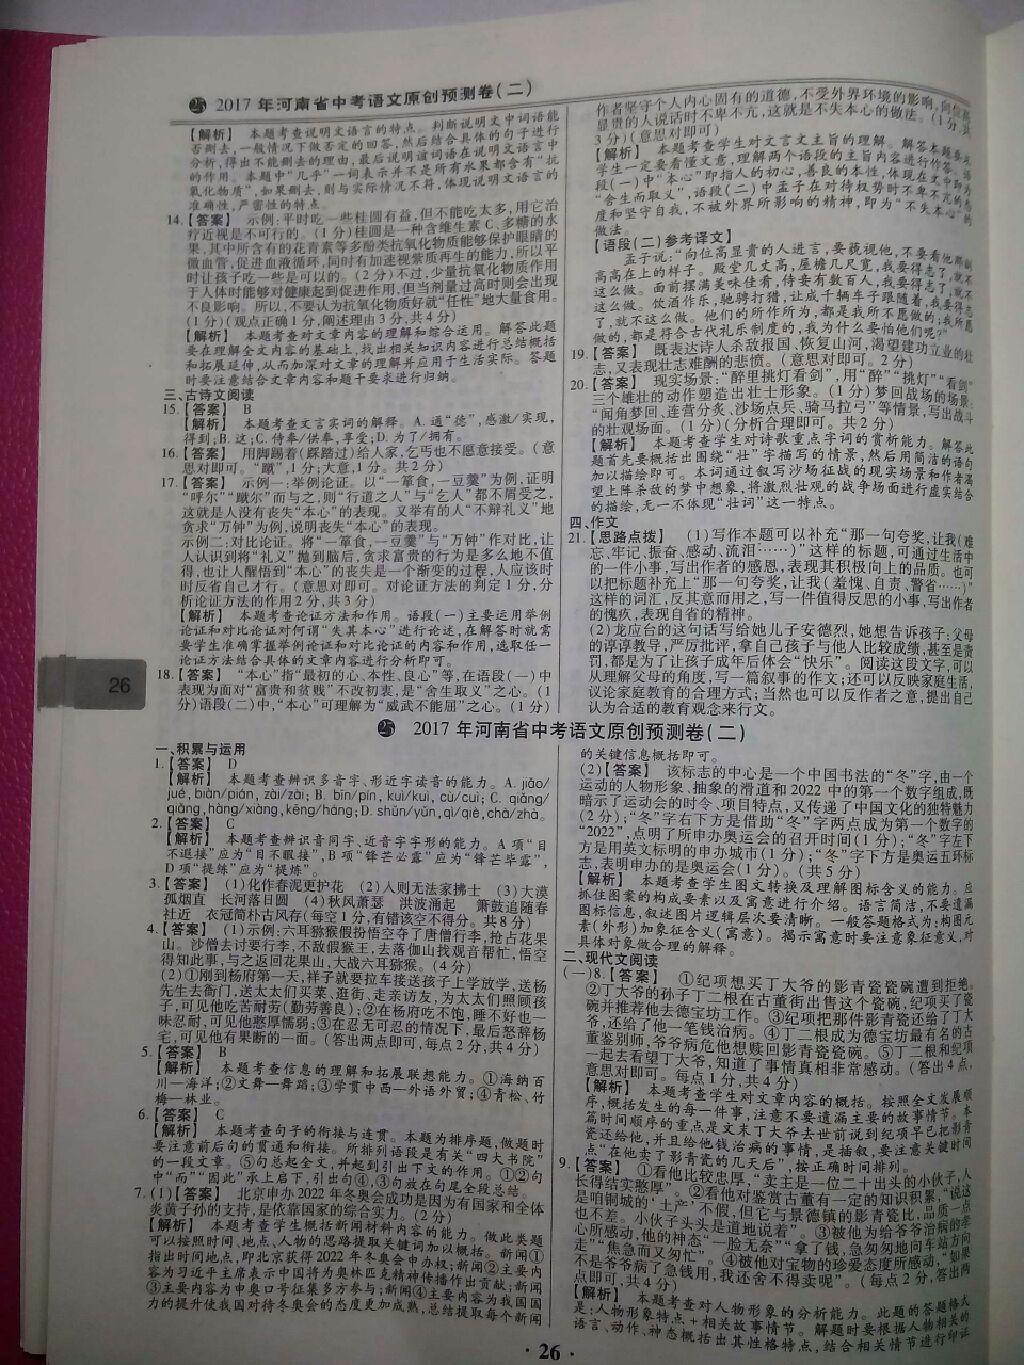 2017 年河南省中考语文原创预测卷(二)
【解析】 本题考查说明文语言的特点。判断说明文中词语能
否删去,一般情况下做否定的回答,然后结合具体的句子进行
分析,得出不能删去的理由,最后说明该词语在说明文语言中
的作用。本题中“几乎”一词表示并不是所有水果都含有“抗
氧化物质”,如果删去,则与实际情况不符,体现说明文语言的
准确性,严密性的特点。
14.【答案】 示例:平时吃一些桂圆有益,但不能吃太多,用它治
疗近视是不可行的。(1分)桂圆是一种含维生素C、多糖的水
果,其中所含有的花青素等多酚类抗氧化物质能够保护眼睛的
微血管,促进血液循环,同时有加速视紫质再生的能力,所以平
时让孩子吃一些是可以的。(2分)不过,少量抗氧化物质作用
于人体时能够对健康起到促进作用,但当剂量过高时则会出现
不良影响。所以,不要认为抗氧化物质好就“任性”地大量食用。
(1分)(观点正确1分,阐述理由3分,共4分)
【解析】 本题考查对文章内容的理解和综合运用。解答此题
要在理解全文内容的基础上,找出相关知识内容进行总结概括
和拓展延伸,从而加深对文章的理解并应用于生活实际。答题
时要注意结合文章内容和题干要求进行归纳。
三、古诗文阅读
15.【答案】 B
【解析】 本题考查文言实词的解释。A.通“德”,感激/实现,
得到;B.这;C.侍奉/供奉,享受;D.为了/拥有。
16.【答案】 用脚踢着(踩踏过)给人家,乞丐也不愿意接受。(意
思对即可。“蹴”,1分;大意,1分。共2分)
17.【答案】 示例一:举例论证。以“一箪食,一豆羹”为例,证明
“呼尔”“蹴尔”而与之,则“行道之人”与“乞人”都不屑受之,
这就是人没有丧失“本心”的表现。又举有的人“不辩礼义”地
贪求“万钟”为例,说明丧失“本心”的表现。
示例二:对比论证。将“一箪食,一豆羹”与“万钟”作对比,让
人认识到将“礼义”抛到脑后,贪求富贵的行为是多么地不值
得,也让人醒悟到“本心”的丧失是一个渐变的过程,人应该时
时反省自己才行。(意思对即可。对论证方法的判定1分,分
析论证方法的作用2分,共3分)
【解析】 本题考查论证方法和作用。语段(一)主要运用举例
论证和对比论证对何谓“失其本心”进行论述,在解答时就需
要学生准确掌握举例论证和对比论证的内容和作用,选取任一
论证方法结合具体的文章内容进行分析即可。
18.【答案】 “本心”指“最初的心、本性、良心”等,在语段(一)中
表现为面对“富贵和贫贱”不改初衷,是“舍生取义”之心。(1
分)语段(二)中,“本心”可理解为“威武不能屈”之心。(1分)
作者坚守个人内心固有的道德,不受外界环境的影响,向位高
显贵的人说话时不卑不亢,这就是不失本心的做法。(1分,共
3分)(意思对即可)
【解析】 本题考查学生对文言文主旨的理解。解答本题要求
学生一定要看懂文意,理解两个语段的主旨内容进行作答。语
段(一)中“本心”即指人的初心,善良的本性,体现在文中即为
“舍生而取义”,语段(二)中孟子在对待权势时不卑不亢的态
度和坚守自我,不被外界所影响的精神,即为“不失本心”的
做法。
【语段(二)参考译文】
孟子说:“向位高显贵的人进言,要藐视他,不要看他那副
高高在上的样子。殿堂几丈高,屋檐几尺宽,我要得志了,就不
这么做。面前摆满美味佳肴,侍妾有数百人,我要得志了,就不
这么做。饮酒作乐,驰骋打猎,让成千辆车子跟随着,我要得志
了,就不这么做。他们的所作所为,都是我所不愿做的;我所愿
做的,都是符合古代礼乐制度的,我为什么要怕他们呢?”
19.【答案】 既表达诗人杀敌报国、恢复山河,渴望建功立业的壮
志,又表现壮志难酬的悲愤。(意思对即可。2分)
20.【答案】 现实场景:“醉里挑灯看剑”,用“醉”“挑灯”“看剑”
三个雄壮的动作塑造出壮士形象。(1分)梦回战场的场景:
“闻角梦回、连营分炙、沙场点兵、骑马拉弓”等情景,写出战斗
的壮观场面。(1分)(分析合理即可。共2分)
【解析】 本题考查学生对诗歌重点字词的赏析能力。解答此
题首先要概括出围绕“壮”字描写的情景,然后用简洁的语句
加以描绘即可。本词通过叙写沙场征战的现实场景和作者渴
望上阵杀敌的梦中想象,将激烈壮观的战争场面进行虚实结合
的描绘,无一不体现“壮词”这一特点。
四、作文
21.【思路点拨】 (1)写作本题可以补充“那一句夸奖,让我(难
忘、牢记、振奋、感动、流泪……)”这样的标题,可通过生活中
的一件小事,写出作者的感恩,表现其积极向上的品质。也可
以把标题补充上“那一句夸奖,让我(羞愧、自责、警省……)”
这样的词汇,反其意而用之,写一件值得反思的小事,写出作者
的愧疚,表现自省的精神。
(2)龙应台的这句话写给她儿子安德烈,她想告诉孩子:父母
的谆谆教导,严厉批评,拿自己孩子与他人比较成绩,甚至是责
罚,都是为了让孩子成年后体会“快乐”。阅读这段文字,可以
从理解父母的角度,写一篇叙事的作文;还可以反映家庭生活,
议论家庭教育的合理方式;当然也可以反作者之意,提出自己
认为合适的教育观念来行文。
26
2017 年河南省中考语文原创预测卷(二)
一、积累与运用
1.【答案】 D
【解析】 本题考查辨识多音字、形近字读音的能力。A. jiāo/
jué,biàn/pián,zài/zāi;B. bīn/pín,kuí/kuí,cù/cuì;C. qiǎng/
qiāng,hàng/xiàng,kēng/háng;D. shǔn/yǔn,qì/qiè,chā/zhā。
2.【答案】 C
【解析】 本题考查辨识音同字、近音字字形的能力。A项“目
不退接”应为“目不暇接”,B项“锋芒必露”应为“锋芒毕露”,
D项“提练”应为“提炼”。
3.【答案】 (1)化作春泥更护花 (2)入则无法家拂士 (3)大漠
孤烟直 长河落日圆 (4)秋风萧瑟 洪波涌起 箫鼓追随春
社近 衣冠简朴古风存(每空1分,有错该空不得分。共8分)
4.【答案】 (1)示例:六耳猕猴假扮悟空夺了唐僧行李,抢占花果
山。沙僧去讨要行李,不敌假猴王,去落伽山找观音帮忙,悟空
得知此事,与之返回花果山,大战六耳猕猴。(4分)
(2)①刚到杨府第一天,祥子就要拉车接送孩子上学放学,送杨
先生去衙门,送太太们买菜、逛街、走亲访友,为太太们照顾孩
子,可见他吃苦耐劳(勤劳善良);②在杨府吃不饱,睡不好也一
味忍耐,可见他憨厚懦弱;③在忍无可忍的情况下,最后怒辞杨
宅,可见他有果断的一面。(答出两点即可,每点2分,共4分)
5.【答案】 B
【解析】 本题考查信息的理解和拓展联想能力。①海纳百
川—海洋;②文舞—舞蹈;③学贯中西—外语外贸;④青松、竹
梅—林业。
6.【答案】 C
【解析】 本题考查句子的衔接与连贯。本题为排序题,做题时
要注意前后句的贯通和衔接。所排列语段是有关“四大书院”
的一段文章。⑤句总起全文,并起到引出下文的作用。①②句
中“而”“因此”承上启下,引出句④,③句放在句尾全段总结。
7.(1)【答案】 北京申办2022年冬奥会成功是因为有国家和全体
炎黄子孙的支持,是依靠国家的综合实力。(2分)
【解析】 本题考查学生概括新闻材料内容的能力。做此类题
可以按照时间、地点、人物的思路提取关键词加以概括。新闻①
指出时间地点,即北京获得2022年冬奥会申办权;新闻②主要内
容为习近平主席表示中国将为奥林匹克精神传播作出贡献;新闻
③主要内容为中奥口号征集多方参与;新闻④主要内容为我国国
力的提升使我国对待冬奥会的态度更加成熟,总结提取每个新闻
的关键信息概括即可。
(2)【答案】 该标志的中心是一个中国书法的“冬”字,由一个
运动的人物形象、抽象的滑道和2022中的第一个数字组成,既
暗示了运动会的时令、项目特点,又传递了中国文化的独特魅力
(2分);“冬”字右下方是借助“冬”字两点成为第一个数字的
“2022”,点明了所申办奥运会的召开时间(1分);“冬”字左下
方是用英文标明的申办城市(1分);“冬”字下方是奥运五环标
志,表明申办的是奥运会(1分)。(共5分)
【解析】 本题考查学生图文转换及理解图标含义的能力。应
抓住图案的构成要素以及寓意进行介绍。语言简洁,不要遗漏
图标信息,叙述图片逻辑层次要清晰。一般答题格式为:构图元
素(外形)加象征含义(寓意)。揭示寓意时要注意象征意义,对
具体对象做合理的解释。
二、现代文阅读
(一)8.【答案】 ①纪项想买丁大爷的影青瓷瓷碗遭到拒绝。
②丁大爷的孙子丁二根在古董街出售这个瓷碗,纪项买了瓷
碗并推荐他去德宝坊工作。③纪项把那件影青瓷还给了丁大
爷,还给了他一笔钱治病。④丁二根成为德宝坊最有名的古
董鉴别师,爷爷病危他想赎回影青瓷瓷碗。⑤丁二根和纪项
一起去看望丁大爷,知道了事情真相非常感动。(答出4点,
意思对即可。每点1分,共4分)
【解析】 本题考查学生对文章内容的概括。按照全文发展顺
序,概括发生的每一件事,注意不要遗漏主要的故事情节。本
篇时间顺序的重点是文末丁大爷去世前说到纪项早已把影青
瓷还给他,并且给他钱治病的事情,是插叙,要注意关键时间
点“在他卖了影青瓷的几天后”,按正确时间排列。
9.【答案】 ①看他比较忠厚,“卖主是一位二十出头的小伙子,人
长得结实憨厚”。②看他对鉴赏古董有一定的知识积累,“说这
是咱铜城的‘土产’不假,但它与景德镇的影青瓷比,品质一点
也不差。小伙子头头是道地说着”。③被他为给爷爷治病的孝
心所感动,他的神态“一脸无奈”“拿了钱,急匆匆地向车站方向
走”“焦急而又匆忙”。④被他对宝物的珍爱态度所感动,“如果
不是爷爷病了急钱用,我还舍不得卖呢”。(每点2分,答出两
点即可,共4分)
【解析】 本题考查对人物形象的分析能力。此题的答题格式
是:人物形象特点+相关故事情节。解题时要根据人物相关的
语言、动作、神态概括出其性格特点,结合相关情节进行印证
· 26 ·